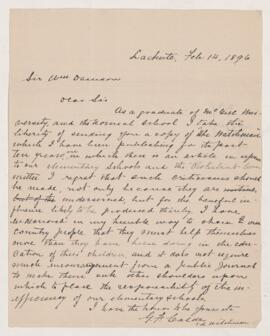 Lachute, Feb 14, 1896
Sir Wm Dawson
Dear Sir
As a graduate of McGill Uni-
versity, and the Normal School I take the
liberty of sending you a copy of the Watchman
which I have been publishing for the past
ten years, in which there is an article in reference
to our elementary schools and the Protestant Com
mittee I regret that such criticisms should
be made, not only because they are
but of the undeserved, but for the harmful in-
fluence likely to be produced thereby. I have
endeavored in my humble way to show to our
country people that they must help themselves
more than they have been doing in the edu-
cation of their children, and it does not require
much encouragement from a public journal
to make them seek other shoulders upon
which to place the responsibility of the in-
efficiency of our elementary schools.
I have the honor to be yours etc
G. F. Calder
Ed. Watchman